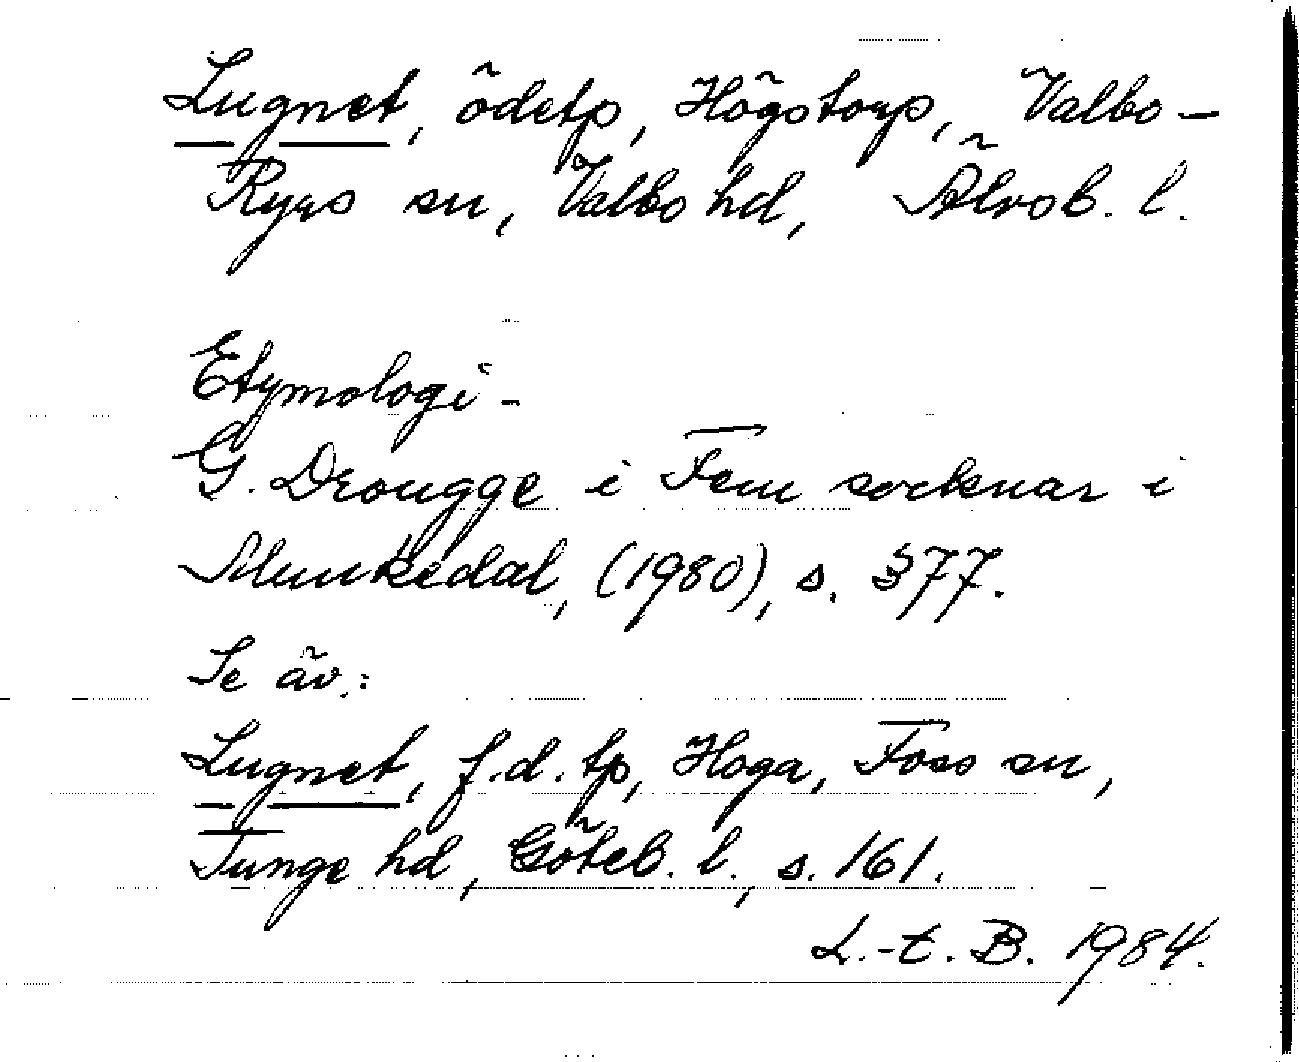 Lugnet, ödetp, Högstorp, Valbo-
Ryrs sn, Valbo hd, Älvsb. l.
Etymologi -
G. Drougge i Fem socknar i
Munkedal, (1980), s. 377.
Se äv.:
Lugnet, f.d. tp, Hoga, Foss sn,
Tunge hd, Göteb. l., s. 161.
L.-E. B. 1984.